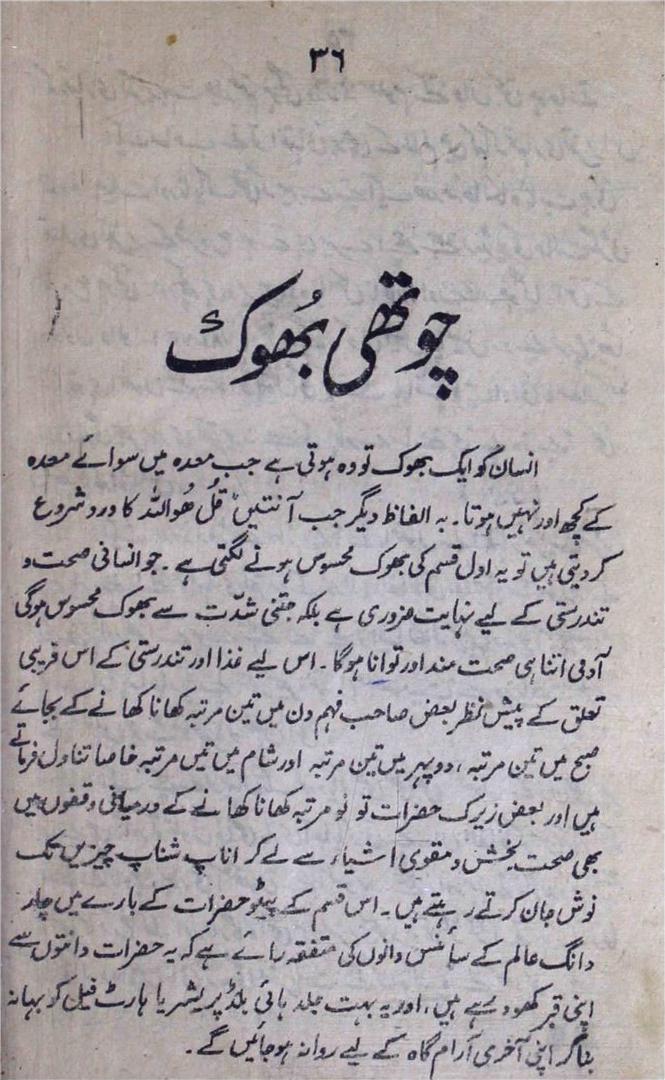 ۳۶
چوتھی بُھوک
انسان کو ایک بھوک تو وہ ہوتی ہے جب معدہ میں سوائے معدہ
کے کچھ اور نہیں ہوتا۔ بہ الفاظ دیگر جب آنتیں " قُل ھُواللہ کا ورد شروع
کر دیتی ہیں تو یہ اول قسم کی بھوک محسوس ہونے لگتی ہے۔ جو انسانی صحت و
تندرستی کے لیے نہایت ضروری ہے بلکہ جتنی شدّت سے بھوک محسوس ہوگی
آدمی اتنا ہی صحت مند اور توانا ہوگا۔ اس لیے غذا اور تندرستی کے اس قریبی
تعلق کے پیش نظر بعض صاحب فہم دن میں تین مرتبہ کھانا کھانے کے بجائے
صبح میں تین مرتبہ، دوپہر میں تین مرتبہ اور شام میں تین مرتبہ خاصا تناول فرماتے
ہیں اور بعض زیرک حضرات تو نو مرتبہ کھانا کھانے کے درمیانی وقفوں میں
بھی صحت بخش و مقوی اشیاء سے لے کر اناپ شناپ چیزیں تک
نوش جان کرتے رہتے ہیں۔ اس قسم کے پیٹو حضرات کے بارے میں چار
دانگ عالم کے سائنس دانوں کی متفقہ رائے ہے کہ یہ حضرات دانتوں سے
اپنی قبر کھود رہے ہیں، اور یہ بہت جلد ہائی بلڈ پریشر یا ہارٹ فیل کو بہانہ
بنا کر اپنی آخری آرام گاہ کے لیے روانہ ہو جائیں گے۔